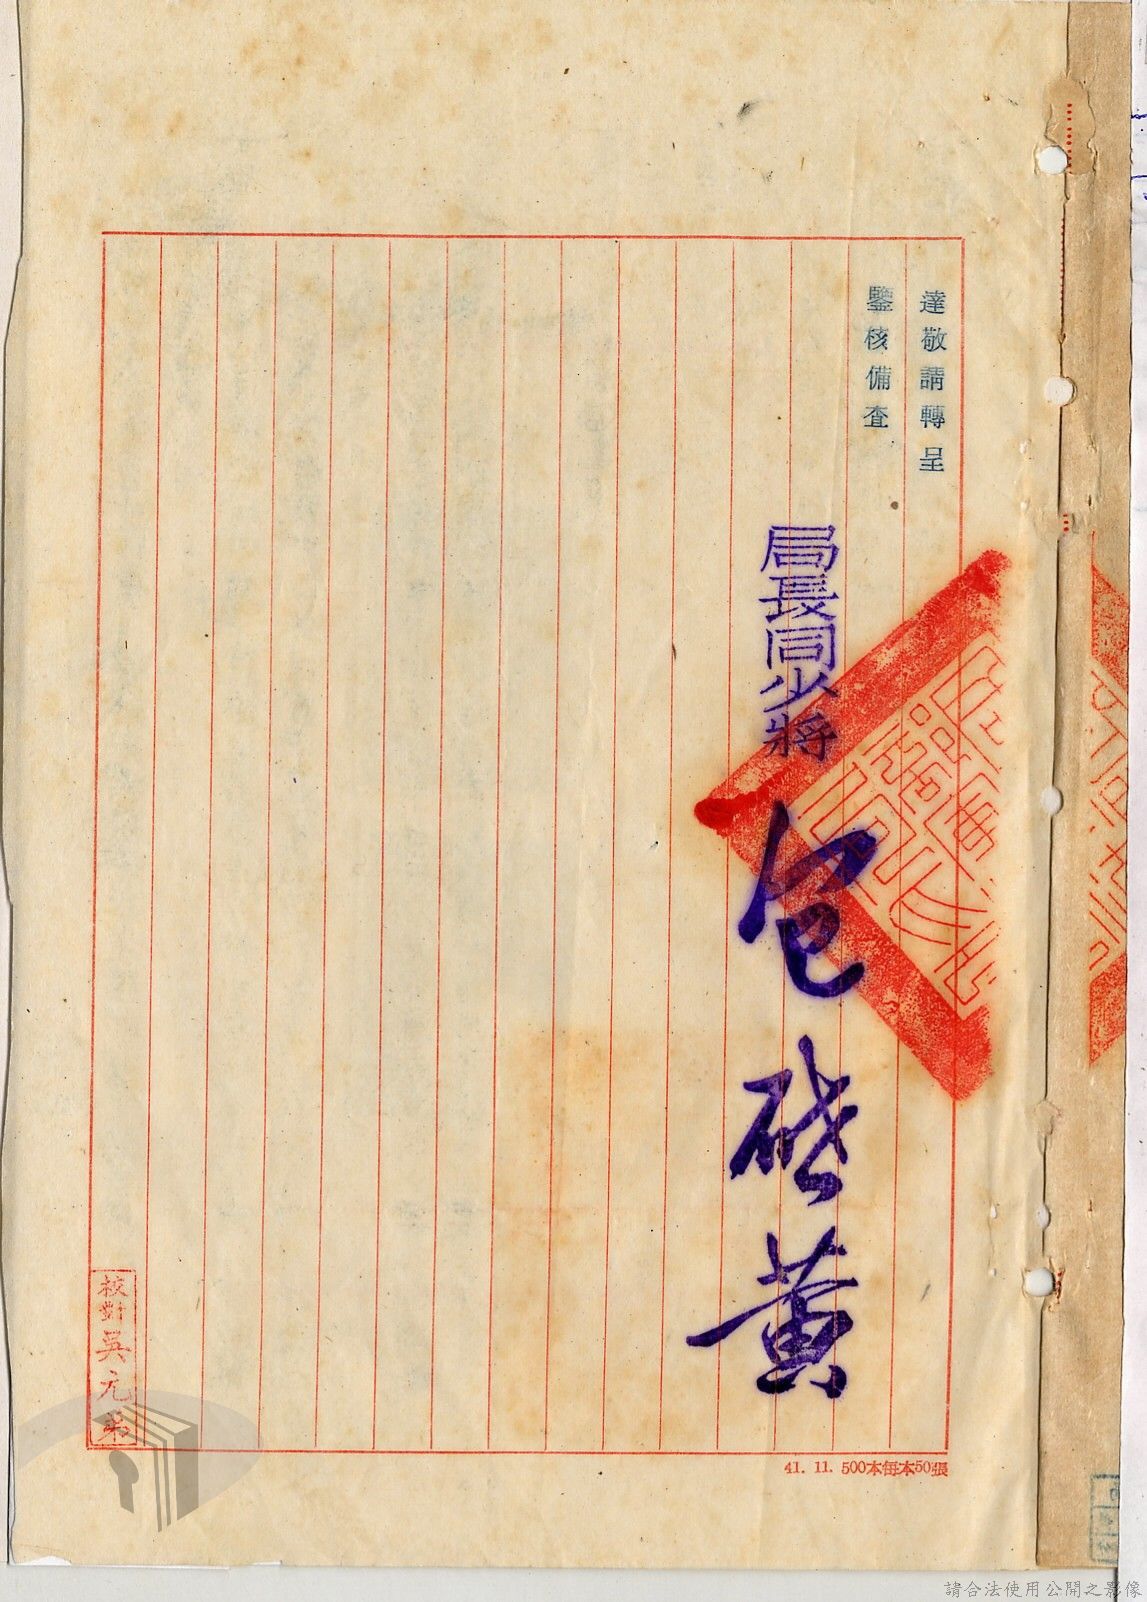 達敬請轉呈
鑒核備查
局長同少將
包啟黃
校對吳元弟
41. 11. 500本每本50張
請合法使用公開之影像